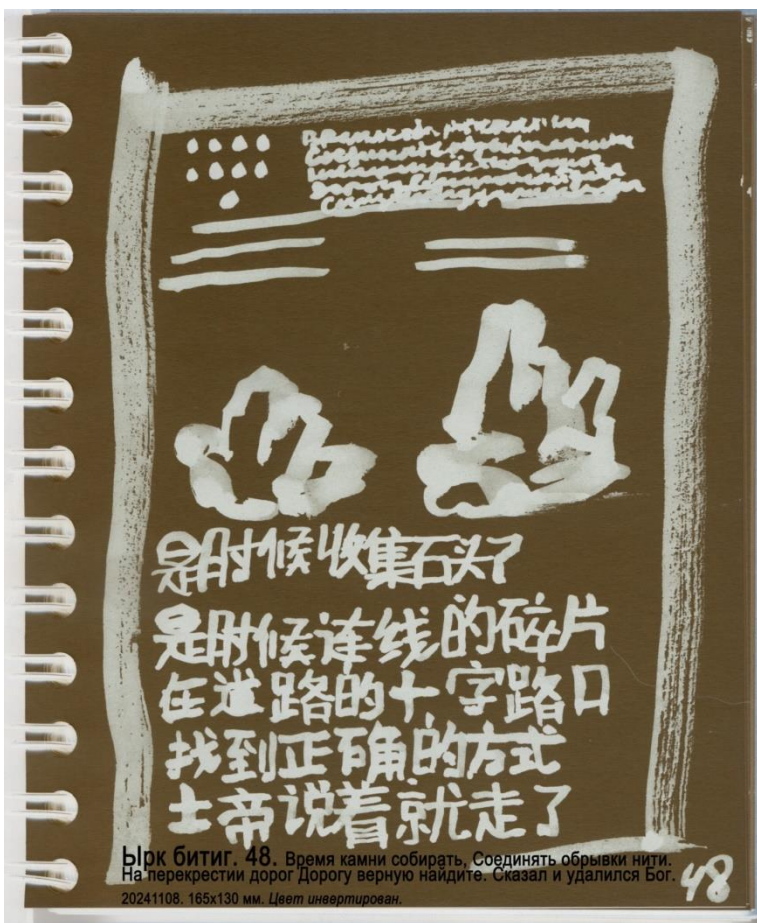 是时候收集石头了
是时候连线的碎片
在道路的十字路口
找到正确的方式
上帝说着就走了
Ырк битиг. 48. Время камни собирать, Соединять обрывки нити.
На перекрестии дорог Дорогу верную найдите. Сказал и удалился Бог.
20241108. 165х130 мм. Цвет инвертирован.
48